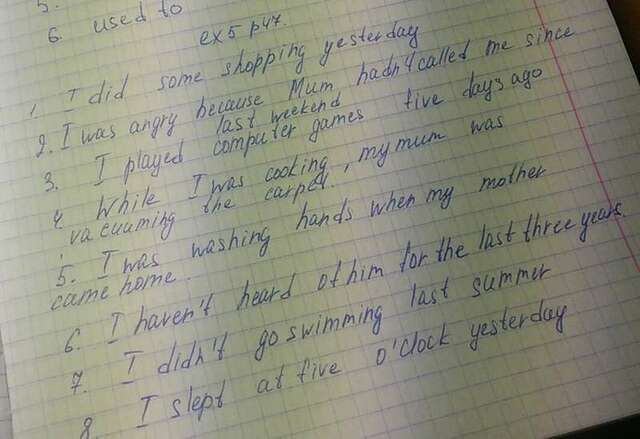 5.
6. used to
ex 5 p 47.
1. I did some shopping yesterday
2. I was angry because Mum hadn't called me since
last weekend
3. I played computer games five days ago
4. While I was cooking, my mum was
vacuuming the carpet.
5. I was washing hands when my mother
came home.
6. I haven't heard of him for the last three years.
7. I didn't go swimming last summer
8. I slept at five o'clock yesterday